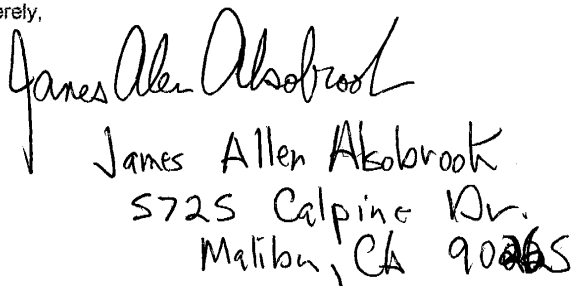 erely,
James Allen Alsobrook
James Allen Alsobrook
5725 Calpine Dr.
Malibu, CA 90265